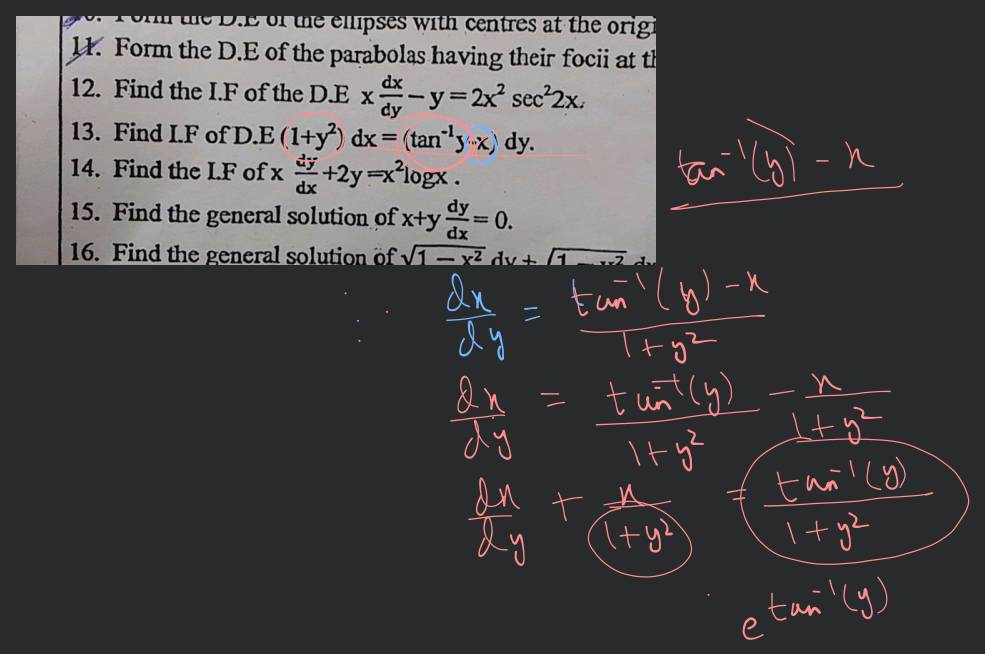 10. Form the D.E of the ellipses with centres at the origi
11. Form the D.E of the parabolas having their focii at th
12. Find the I.F of the D.E x dx/dy - y = 2x² sec²2x.
13. Find I.F of D.E (1+y²) dx = (tan⁻¹y-x) dy.
14. Find the I.F of x dy/dx +2y=x²logx .
15. Find the general solution of x+y dy/dx = 0.
16. Find the general solution of √1 – x² dy +
tan⁻¹(y) - x
∴ dx/dy = tan⁻¹(y) - x / 1+y²
dx/dy = tan⁻¹(y) / 1+y² - x / 1+y²
dx/dy + x / 1+y² = tan⁻¹(y) / 1+y²
e tan⁻¹(y)